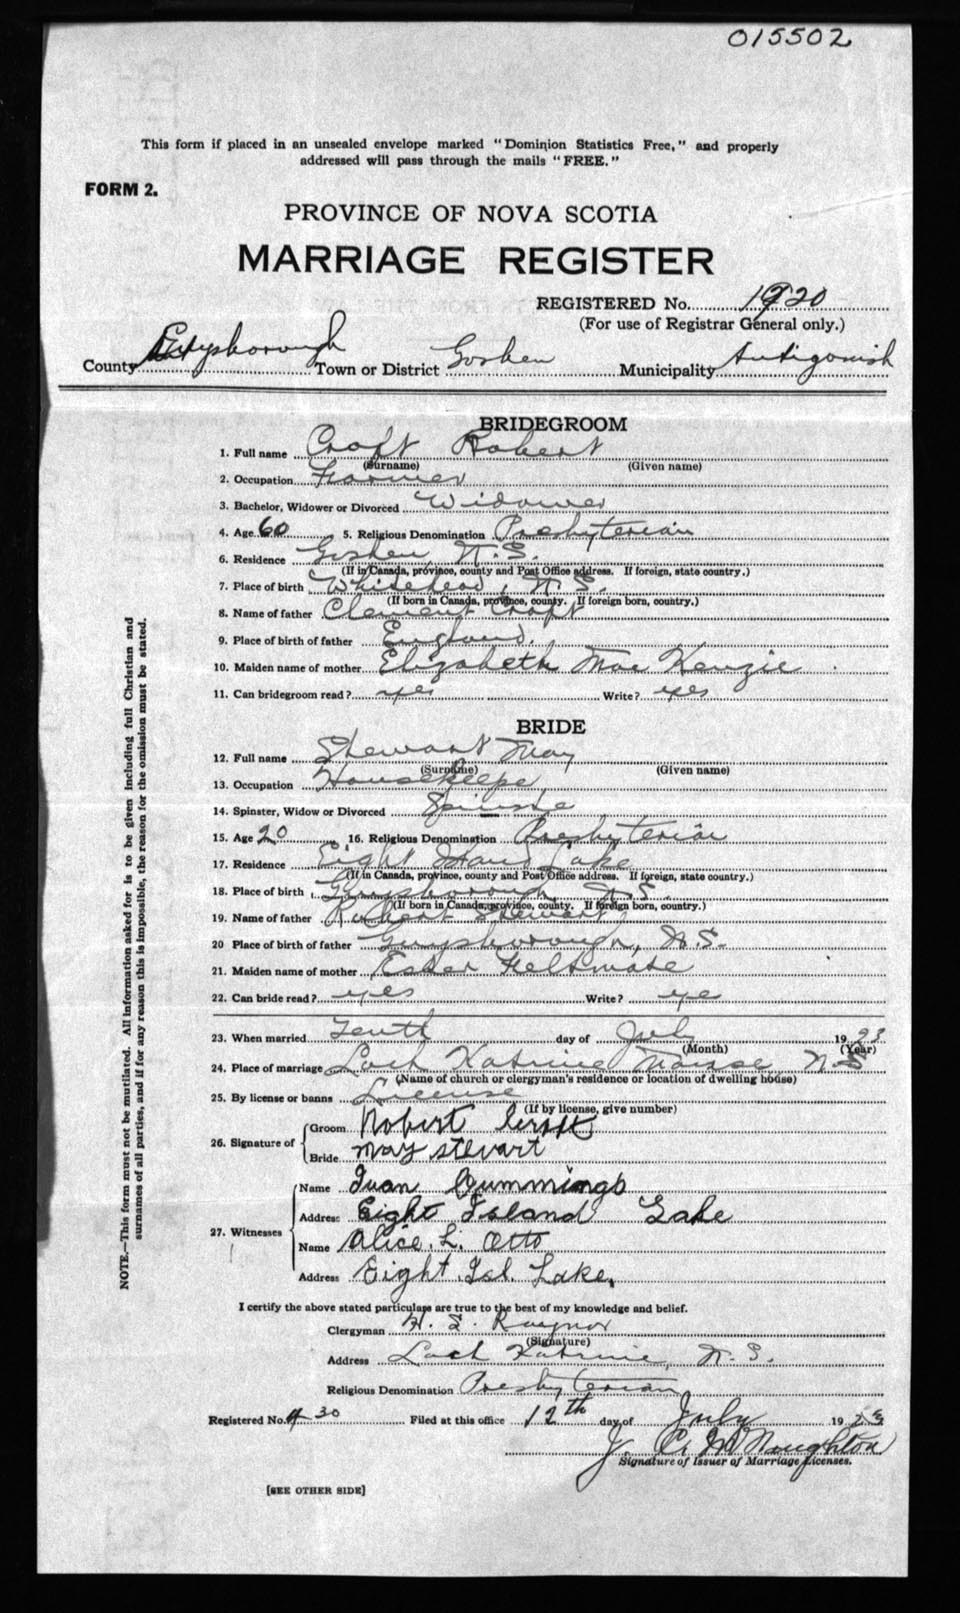 015502
This form if placed in an unsealed envelope marked "Dominion Statistics Free," and properly
addressed will pass through the mails "FREE."
FORM 2.
PROVINCE OF NOVA SCOTIA
MARRIAGE REGISTER
REGISTERED No. 1920
(For use of Registrar General only.)
County Guysborough Town or District Goshen Municipality Antigonish
BRIDEGROOM
1. Full name Croft Robert
(Surname) (Given name)
2. Occupation Farmer
3. Bachelor, Widower or Divorced Widower
4. Age 60 5. Religious Denomination Presbyterian
6. Residence Goshen N.S.
(If in Canada, province, county and Post Office address. If foreign, state country.)
7. Place of birth Whitehead, N.S.
(If born in Canada, province, county. If foreign born, country.)
8. Name of father Clement Croft
9. Place of birth of father England.
10. Maiden name of mother Elizabeth MacKenzie
11. Can bridegroom read? yes Write? yes
BRIDE
12. Full name Stewart May
(Surname) (Given name)
13. Occupation Housekeepe
14. Spinster, Widow or Divorced Spinste
15. Age 20 16. Religious Denomination Presbyterian
17. Residence Eight Island Lake
(If in Canada, province, county and Post Office address. If foreign, state country.)
18. Place of birth Guysborough N.S.
(If born in Canada, province, county. If foreign born, country.)
19. Name of father Stewart
20 Place of birth of father Guysborough, N.S.
21. Maiden name of mother Feltmate
22. Can bride read? yes Write? ye
23. When married Tenth day of July 1923
(Month) (Year)
24. Place of marriage Loch Katrine Manse N.S
(Name of church or clergyman's residence or location of dwelling house)
25. By license or banns License
(If by license, give number)
26. Signature of Groom Robert Croft
Bride may stewart
27. Witnesses Name Ivan Cummings
Address Eight Island Lake
Name Alice. L. Otto
Address Eight Isl. Lake.
I certify the above stated particulars are true to the best of my knowledge and belief.
Clergyman H. S. Raynor
(Signature)
Address Loch Katrine, N.S.
Religious Denomination Presbyterian
Registered No. 30 Filed at this office 12th day of July 1923
J. C. McNaughton
Signature of Issuer of Marriage Licenses.
[SEE OTHER SIDE]
NOTE.—This form must not be mutilated. All information asked for is to be given including full Christian and
surnames of all parties, and if for any reason this is impossible, the reason for the omission must be stated.